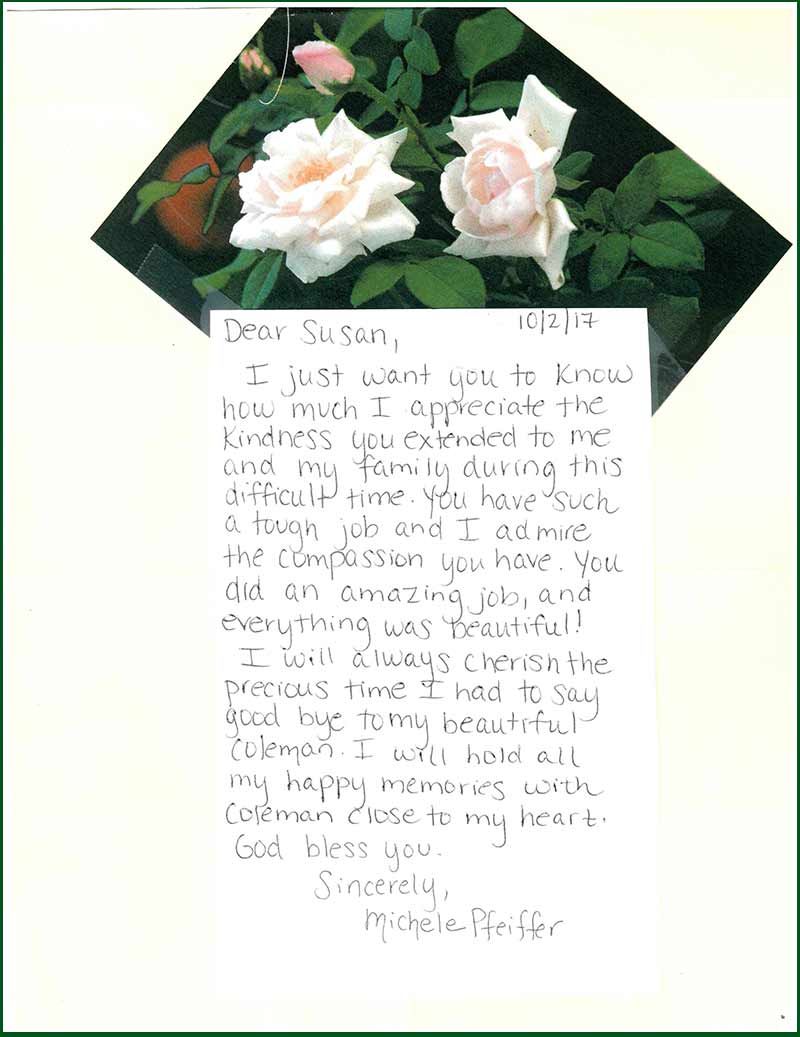 Dear Susan,
10/2/17
I just want you to know
how much I appreciate the
kindness you extended to me
and my family during this
difficult time. You have such
a tough job and I admire
the compassion you have. You
did an amazing job, and
everything was beautiful!
I will always cherish the
precious time I had to say
good bye to my beautiful
Coleman. I will hold all
my happy memories with
Coleman close to my heart.
God bless you.
Sincerely,
Michele Pfeiffer